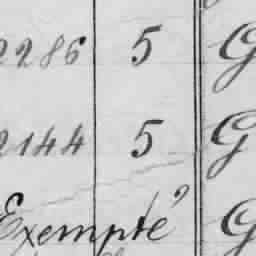 2286 5 G
2144 5 G
Exempté G